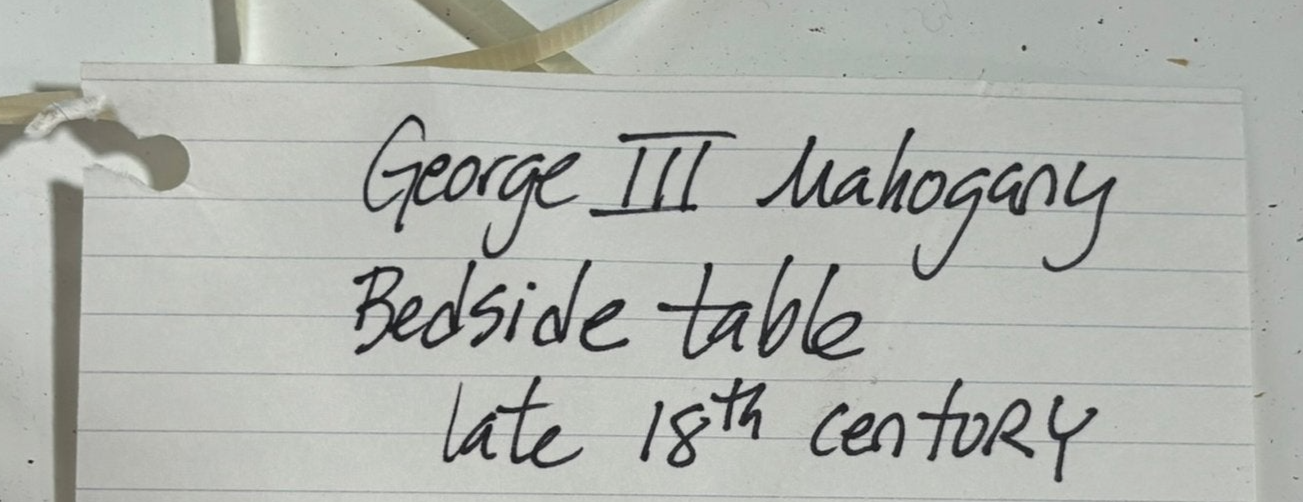 George III Mahogany
Bedside table
late 18th centoRY